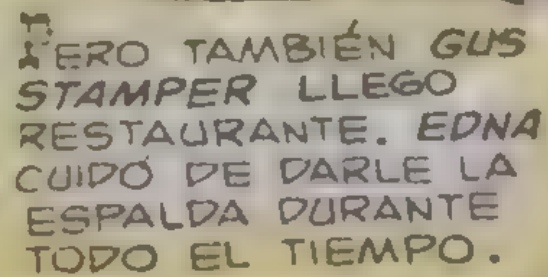 PERO TAMBIÉN GUS
STAMPER LLEGO
RESTAURANTE. EDNA
CUIDÓ DE DARLE LA
ESPALDA DURANTE
TODO EL TIEMPO.